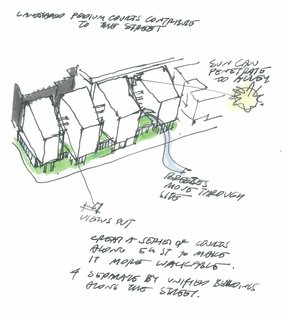 LANDSCAPED PODIUM COURTS CONTRIBUTE
TO THE STREET
SUN CAN
PENETRATE
TO ALLEY
BREEZES
MOVE THROUGH
SITE
VIEWS OUT
CREAT A SERIES OF COURTS
ALONG 5th ST TO MAKE
IT MORE WALKABLE.
& SEPARATE BY UNIFIED BUILDINGS
ALONG THE STREET.